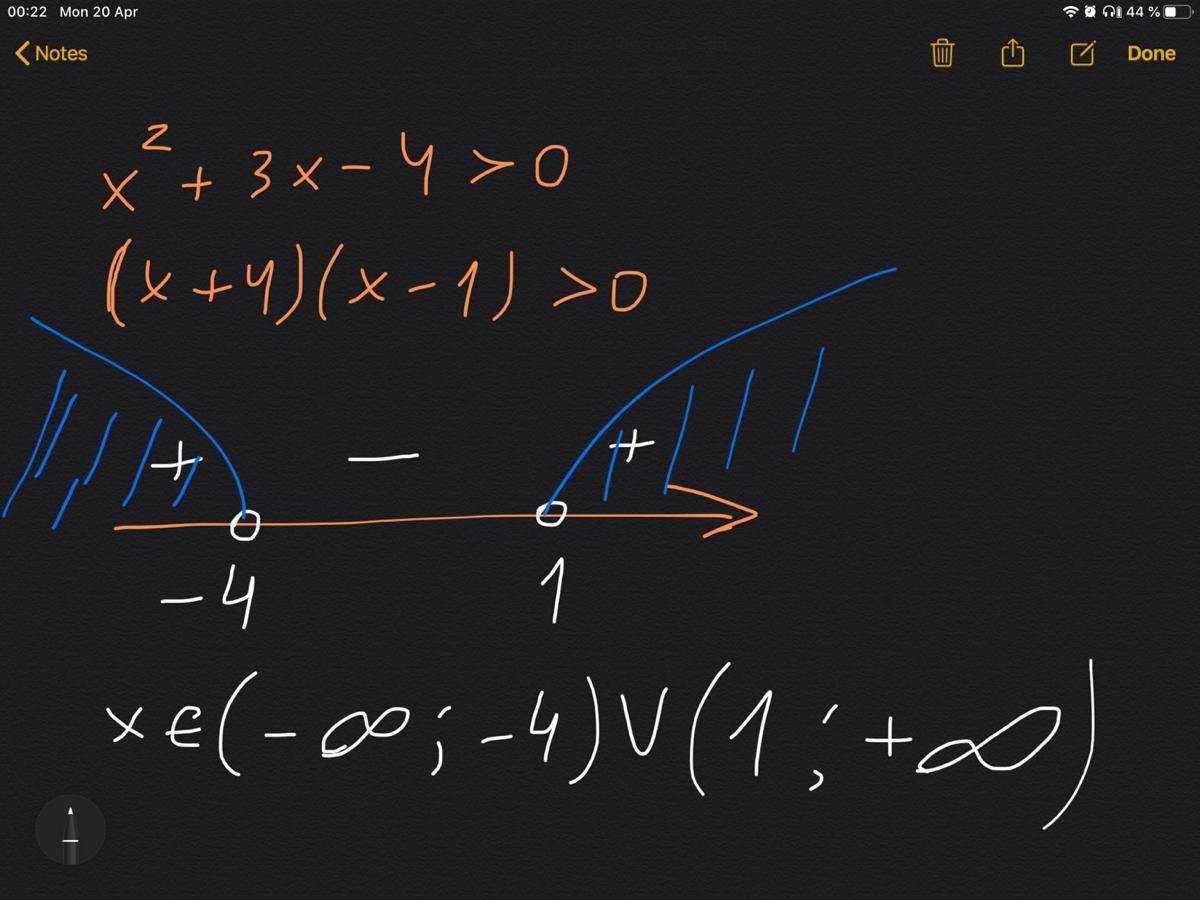 00:22 Mon 20 Apr 44 %
Notes Done
x² + 3x - 4 > 0
(x + 4)(x - 1) > 0
+ − +
-4 1
x ∈ (-∞ ; -4) ∨ (1 ; +∞)